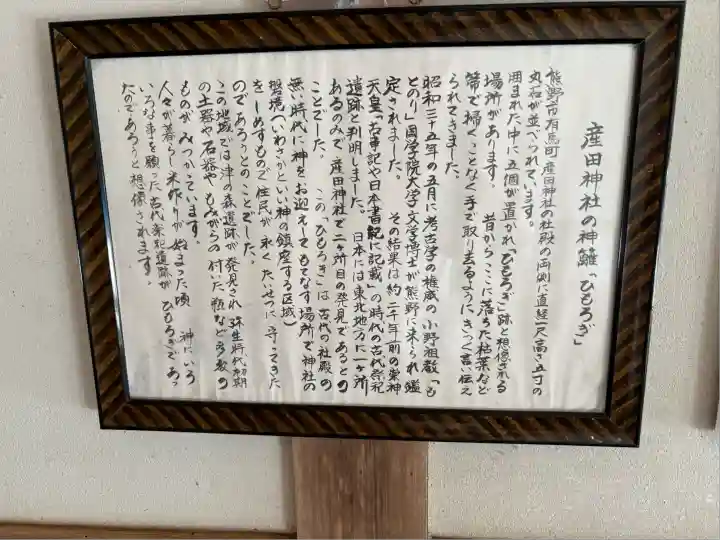 産田神社の神籬「ひもろぎ」
熊野市有馬町産田神社の社殿の両側に直経一尺高さ五寸の
丸石が並べられています。
囲まれた中に五個が置かれ「ひもろぎ」跡と想像される
場所があります。 昔からここに落ちた枯葉など
箒で掃くことなく手で取り去るようにきつく言い伝え
られてきました。
昭和三十五年の五月に考古学の権威の小野祖教「も
とのり」国学院大学文学博士が熊野に来られ鑑
定されました。 その結果は約二千年前の崇神
天皇「古事記や日本書記に記載」の時代の古代祭祀
遺跡と判明しました。 日本には東北地方に一ヶ所
あるのみで産田神社で二ヶ所目の発見であるとの
ことでした。 この「ひもろぎ」は古代の社殿の
無い時代に神をお迎えしてもてなす場所で神社の
磐境(いわさかといい神の鎮座する区域)
をしめすもので住民が永くたいせつに守ってきた
のであろうとのことでした。
この地域では津の森遺跡が発見され弥生時代初期
の土器や石器やもみがらの付いた瓶など多数の
ものがみつかっています。
人々が暮らし米作りが始まった頃 神にいろ
いろな事を願った古代祭祀遺跡がひもろぎであっ
たのであろうと想像されます。